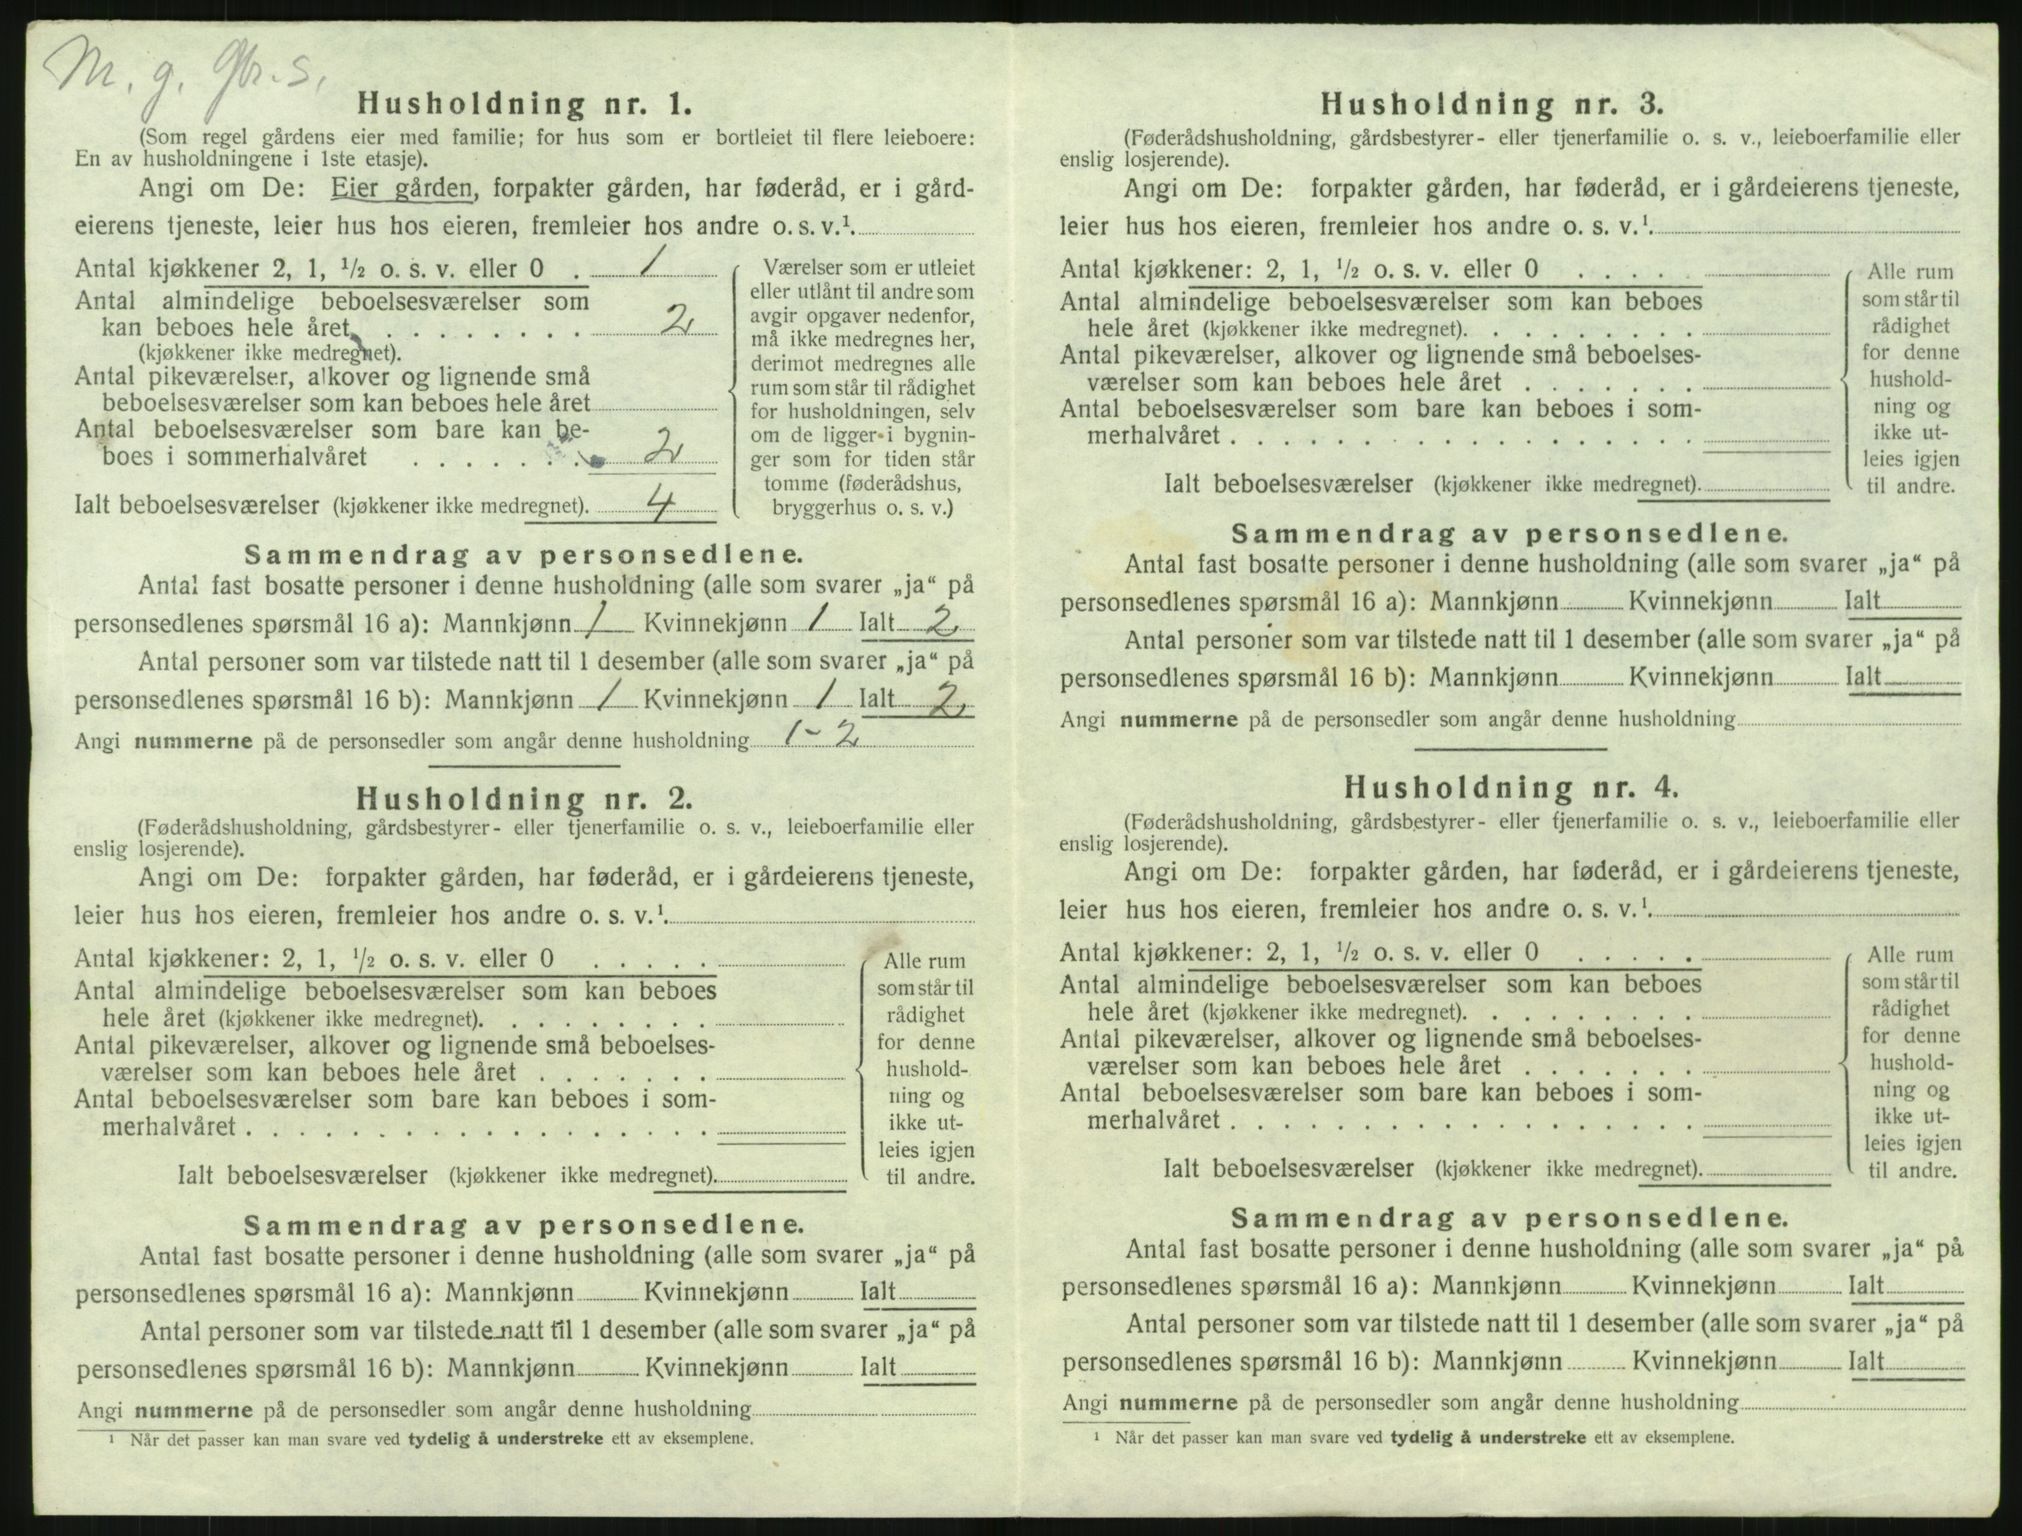 M. g. Gbr. s.
Husholdning nr. 1.
(Som regel gårdens eier med familie; for hus som er bortleiet til flere leieboere:
En av husholdningene i 1ste etasje).
Angi om De: Eier gården, forpakter gården, har føderåd, er i gård-
eierens tjeneste, leier hus hos eieren, fremleier hos andre o. s. v.¹.
Antal kjøkkener 2, 1, ½ o. s. v. eller 0 . 1
Antal almindelige beboelsesværelser som
kan beboes hele året . . . . . . . . 2
(kjøkkener ikke medregnet).
Antal pikeværelser, alkover og lignende små
beboelsesværelser som kan beboes hele året
Antal beboelsesværelser som bare kan be-
boes i sommerhalvåret . . . . . . . 2
Ialt beboelsesværelser (kjøkkener ikke medregnet). 4
Værelser som er utleiet
eller utlånt til andre som
avgir opgaver nedenfor,
må ikke medregnes her,
derimot medregnes alle
rum som står til rådighet
for husholdningen, selv
om de ligger i bygnin-
ger som for tiden står
tomme (føderådshus,
bryggerhus o. s. v.)
Sammendrag av personsedlene.
Antal fast bosatte personer i denne husholdning (alle som svarer „ja“ på
personsedlenes spørsmål 16 a): Mannkjønn 1 Kvinnekjønn 1 Ialt 2
Antal personer som var tilstede natt til 1 desember (alle som svarer „ja“ på
personsedlenes spørsmål 16 b): Mannkjønn 1 Kvinnekjønn 1 Ialt 2
Angi nummerne på de personsedler som angår denne husholdning 1-2
Husholdning nr. 2.
(Føderådshusholdning, gårdsbestyrer- eller tjenerfamilie o. s. v., leieboerfamilie eller
enslig losjerende).
Angi om De: forpakter gården, har føderåd, er i gårdeierens tjeneste,
leier hus hos eieren, fremleier hos andre o. s. v.¹.
Antal kjøkkener: 2, 1, ½ o. s. v. eller 0 . . . . .
Antal almindelige beboelsesværelser som kan beboes
hele året (kjøkkener ikke medregnet). . . . . . . . .
Antal pikeværelser, alkover og lignende små beboelses-
værelser som kan beboes hele året . . . . . . .
Antal beboelsesværelser som bare kan beboes i som-
merhalvåret . . . . . . . . . . . . . . . . . .
Ialt beboelsesværelser (kjøkkener ikke medregnet).
Alle rum
som står til
rådighet
for denne
hushold-
ning og
ikke ut-
leies igjen
til andre.
Sammendrag av personsedlene.
Antal fast bosatte personer i denne husholdning (alle som svarer „ja“ på
personsedlenes spørsmål 16 a): Mannkjønn Kvinnekjønn Ialt
Antal personer som var tilstede natt til 1 desember (alle som svarer „ja“ på
personsedlenes spørsmål 16 b): Mannkjønn Kvinnekjønn Ialt
Angi nummerne på de personsedler som angår denne husholdning
¹ Når det passer kan man svare ved tydelig å understreke ett av eksemplene.
Husholdning nr. 3.
(Føderådshusholdning, gårdsbestyrer- eller tjenerfamilie o. s. v., leieboerfamilie eller
enslig losjerende).
Angi om De: forpakter gården, har føderåd, er i gårdeierens tjeneste,
leier hus hos eieren, fremleier hos andre o. s. v.¹.
Antal kjøkkener: 2, 1, ½ o. s. v. eller 0 . . . . .
Antal almindelige beboelsesværelser som kan beboes
hele året (kjøkkener ikke medregnet). . . . . . . . .
Antal pikeværelser, alkover og lignende små beboelses-
værelser som kan beboes hele året . . . . . . .
Antal beboelsesværelser som bare kan beboes i som-
merhalvåret . . . . . . . . . . . . . . . . . .
Ialt beboelsesværelser (kjøkkener ikke medregnet).
Alle rum
som står til
rådighet
for denne
hushold-
ning og
ikke ut-
leies igjen
til andre.
Sammendrag av personsedlene.
Antal fast bosatte personer i denne husholdning (alle som svarer „ja“ på
personsedlenes spørsmål 16 a): Mannkjønn Kvinnekjønn Ialt
Antal personer som var tilstede natt til 1 desember (alle som svarer „ja“ på
personsedlenes spørsmål 16 b): Mannkjønn Kvinnekjønn Ialt
Angi nummerne på de personsedler som angår denne husholdning
Husholdning nr. 4.
(Føderådshusholdning, gårdsbestyrer- eller tjenerfamilie o. s. v., leieboerfamilie eller
enslig losjerende).
Angi om De: forpakter gården, har føderåd, er i gårdeierens tjeneste,
leier hus hos eieren, fremleier hos andre o. s. v.¹.
Antal kjøkkener: 2, 1, ½ o. s. v. eller 0 . . . . .
Antal almindelige beboelsesværelser som kan beboes
hele året (kjøkkener ikke medregnet). . . . . . . . .
Antal pikeværelser, alkover og lignende små beboelses-
værelser som kan beboes hele året . . . . . . .
Antal beboelsesværelser som bare kan beboes i som-
merhalvåret . . . . . . . . . . . . . . . . . .
Ialt beboelsesværelser (kjøkkener ikke medregnet).
Alle rum
som står til
rådighet
for denne
hushold-
ning og
ikke ut-
leies igjen
til andre.
Sammendrag av personsedlene.
Antal fast bosatte personer i denne husholdning (alle som svarer „ja“ på
personsedlenes spørsmål 16 a): Mannkjønn Kvinnekjønn Ialt
Antal personer som var tilstede natt til 1 desember (alle som svarer „ja“ på
personsedlenes spørsmål 16 b): Mannkjønn Kvinnekjønn Ialt
Angi nummerne på de personsedler som angår denne husholdning
¹ Når det passer kan man svare ved tydelig å understreke ett av eksemplene.